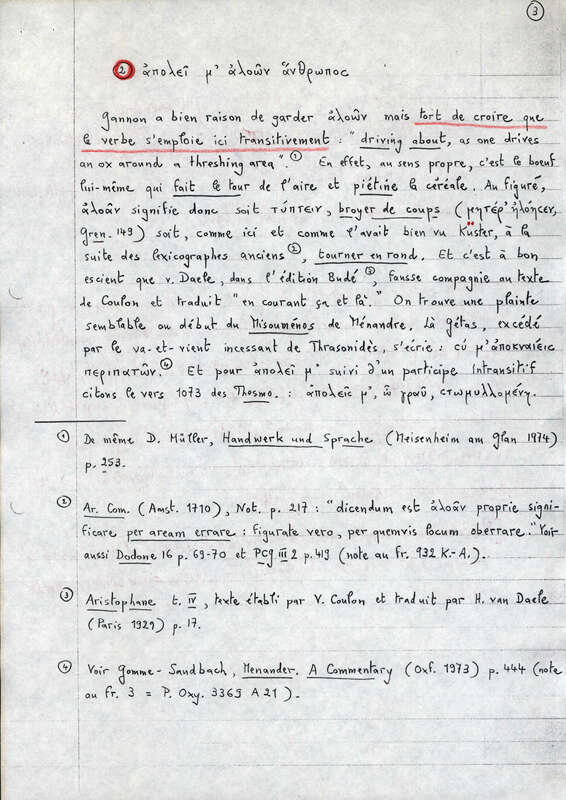 3
2 ἀπολεῖ μ' ἀλοῶν ἄνθρωπος
Gannon a bien raison de garder ἀλοῶν mais tort de croire que
le verbe s'emploie ici transitivement : "driving about, as one drives
an ox around a threshing area". ① En effet, au sens propre, c'est le boeuf
lui-même qui fait le tour de l'aire et piétine la céréale. Au figuré,
ἀλοᾶν signifie donc soit τύπτειν, broyer de coups (μητέρ' ἠλόησεν,
Gren. 149) soit, comme ici et comme l'avait bien vu Küster, à la
suite des lexicographes anciens ②, tourner en rond. Et c'est à bon
escient que v. Daele, dans l'édition Budé ③, fausse compagnie au texte
de Coulon et traduit "en courant ça et là." On trouve une plainte
semblable au début du Misouménos de Ménandre. Là Gétas, excédé
par le va-et-vient incessant de Thrasonidès, s'écrie : σύ μ' ἀποκναίεις
περιπατῶν. ④ Et pour ἀπολεῖ μ' suivi d'un participe intransitif
citons le vers 1073 des Thesmo. : ἀπολεῖς μ', ὦ γραῦ, στωμυλλομένη.
① De même D. Müller, Handwerk und Sprache (Meisenheim am Glan 1974)
p. 253.
② Ar. Com. (Amst. 1710), Not. p. 217 : "dicendum est ἀλοᾶν proprie signi-
ficare per aream errare : figurate vero, per quemvis locum oberrare." Voir
aussi Dodone 16 p. 69-70 et PCG III 2 p. 419 (note au fr. 932 K.-A.).
③ Aristophane t. IV, texte établi par V. Coulon et traduit par H. van Daele
(Paris 1929) p. 17.
④ Voir Gomme-Sandbach, Menander. A Commentary (Oxf. 1973) p. 444 (note
au fr. 3 = P. Oxy. 3369 A 21).